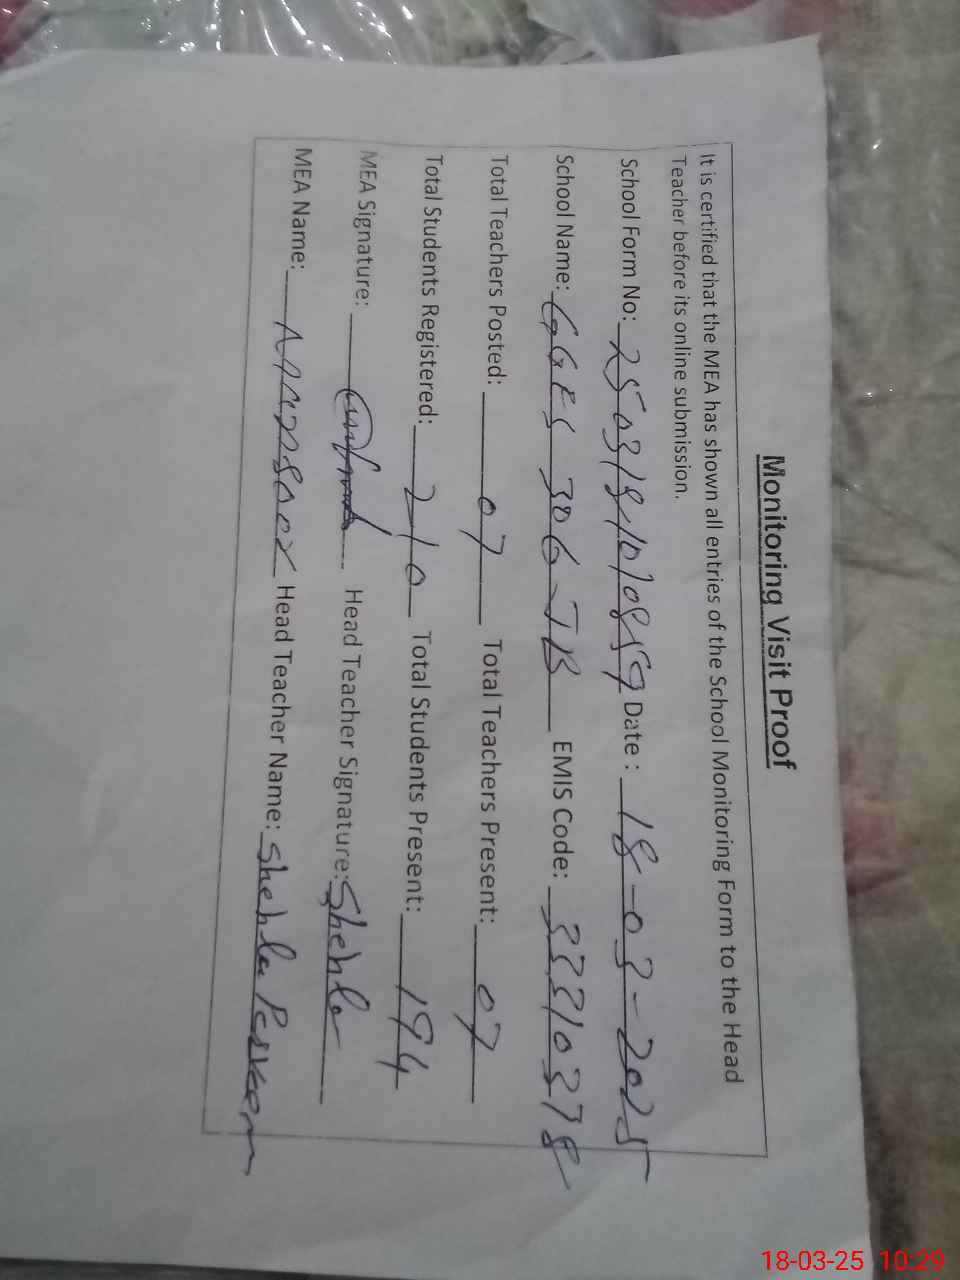 Monitoring Visit Proof
It is certified that the MEA has shown all entries of the School Monitoring Form to the Head
Teacher before its online submission.
School Form No: 2503181010859 Date : 18-03-2025
School Name: GGES 306 JB EMIS Code: 33210378
Total Teachers Posted: 07 Total Teachers Present: 07
Total Students Registered: 210 Total Students Present: 194
MEA Signature: Head Teacher Signature: Shehla
MEA Name: Head Teacher Name: Shehla Parveen
18-03-25 10:29